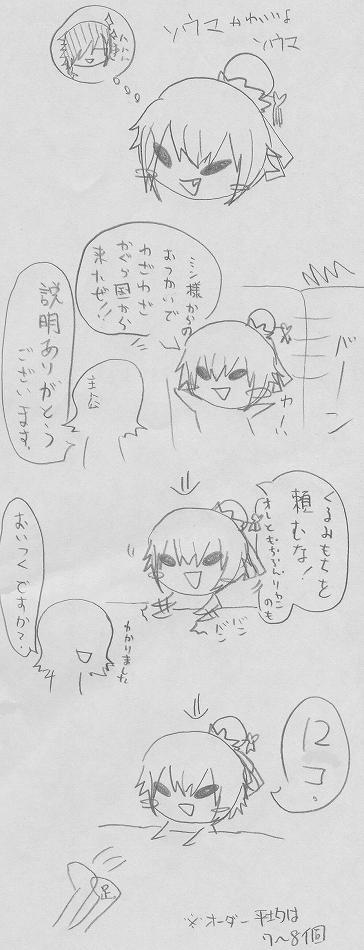 ソウマ かわいいよ
ソウマ
ハハハ
バーン
ミン様からの
おつかいで
わざわざ
かぐら国から
来たぜ!!
主公
説明ありがとう
ございます。
わーい
くるみもちを
頼むな!
オレともちづきんとリャン
のも
バン
バン
おいくつですか?
わかりました
12
コ。
足
※オーダー平均は
7〜8個